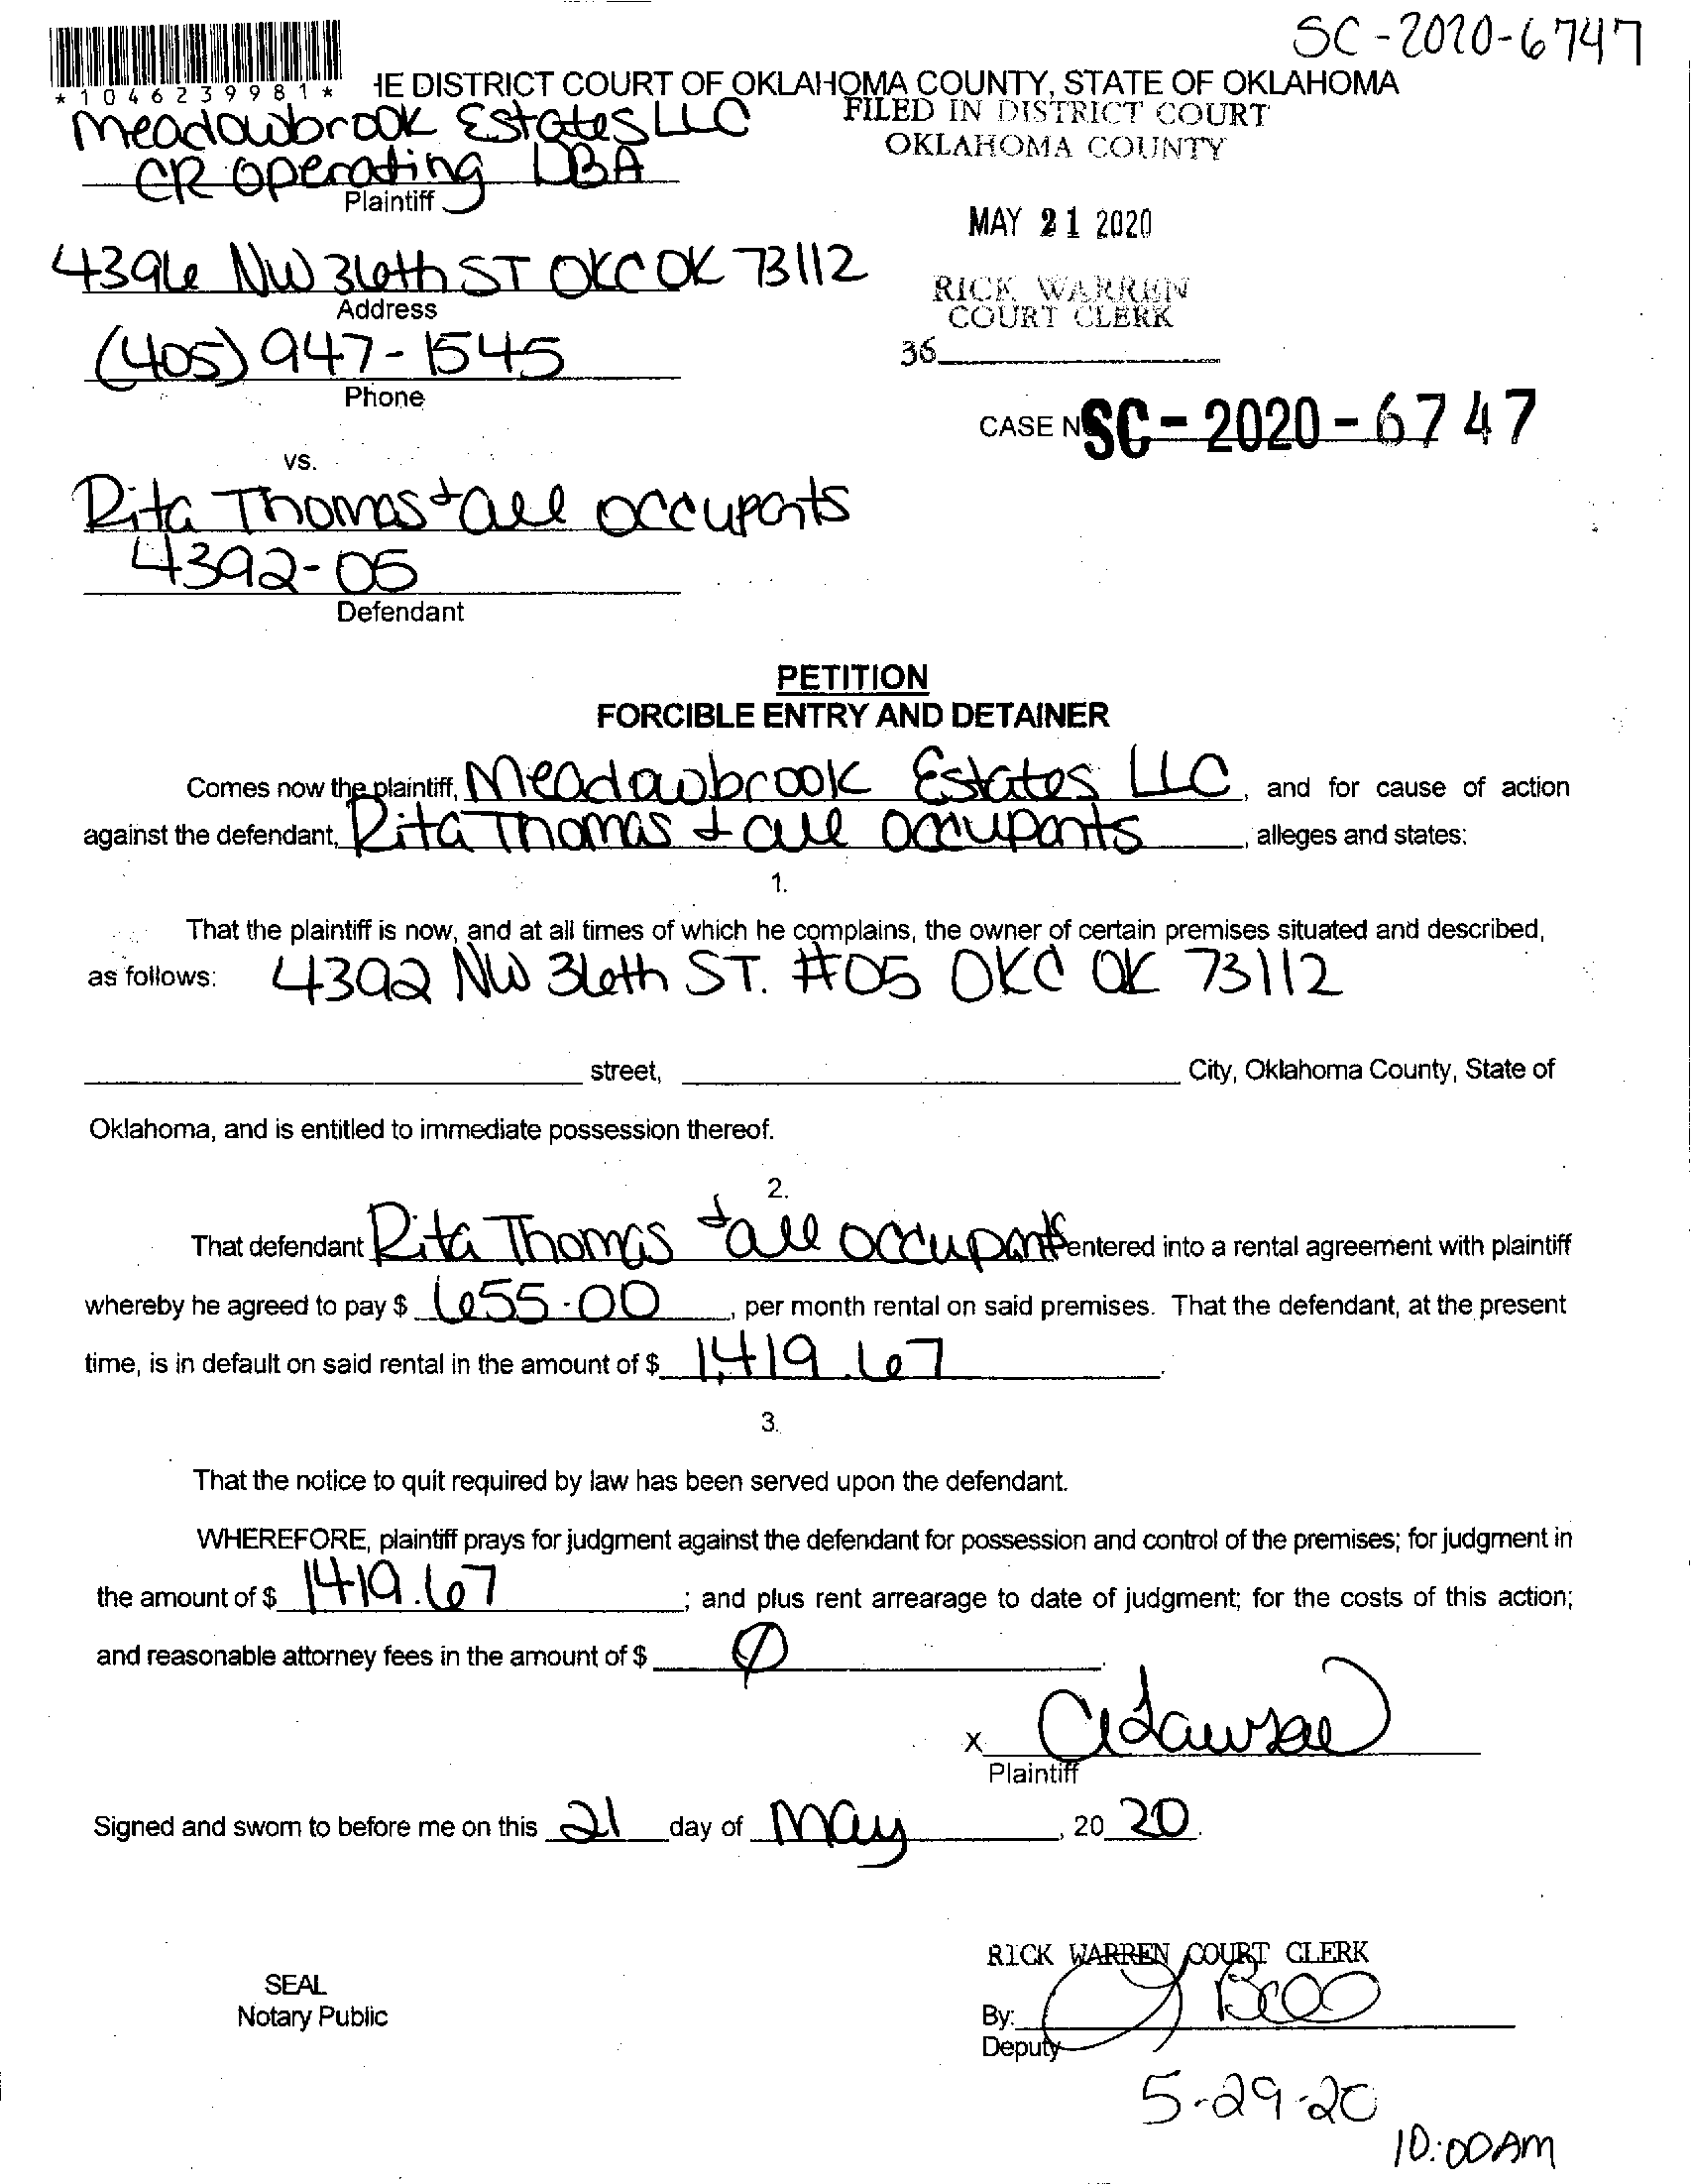 SC-2020-6747
*1046239981*
HE DISTRICT COURT OF OKLAHOMA COUNTY, STATE OF OKLAHOMA
Meadowbrook Estates LLC
CR Operating DBA
Plaintiff
FILED IN DISTRICT COURT
OKLAHOMA COUNTY
MAY 21 2020
4396 NW 36th ST OKC OK 73112
Address
RICK WARREN
COURT CLERK
(405) 947-1545
Phone
36
CASE N SC-2020-6747
VS.
Rita Thomas + all occupants
4392-05
Defendant
PETITION
FORCIBLE ENTRY AND DETAINER
Comes now the plaintiff, Meadowbrook Estates LLC, and for cause of action
against the defendant, Rita Thomas + all occupants, alleges and states:
1.
That the plaintiff is now, and at all times of which he complains, the owner of certain premises situated and described,
as follows: 4392 NW 36th ST. #05 OKC OK 73112
street, City, Oklahoma County, State of
Oklahoma, and is entitled to immediate possession thereof.
2.
That defendant Rita Thomas + all occupants entered into a rental agreement with plaintiff
whereby he agreed to pay $ 655.00, per month rental on said premises. That the defendant, at the present
time, is in default on said rental in the amount of $ 1,419.67.
3.
That the notice to quit required by law has been served upon the defendant.
WHEREFORE, plaintiff prays for judgment against the defendant for possession and control of the premises; for judgment in
the amount of $ 1419.67; and plus rent arrearage to date of judgment; for the costs of this action;
and reasonable attorney fees in the amount of $ Ø.
X
Plaintiff
Signed and sworn to before me on this 21 day of May, 20 20.
RICK WARREN COURT CLERK
SEAL
Notary Public
By:
Deputy
5-29-20
10:00AM